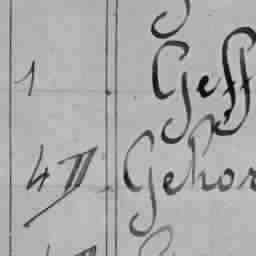 1 Geff
4 II Gehor